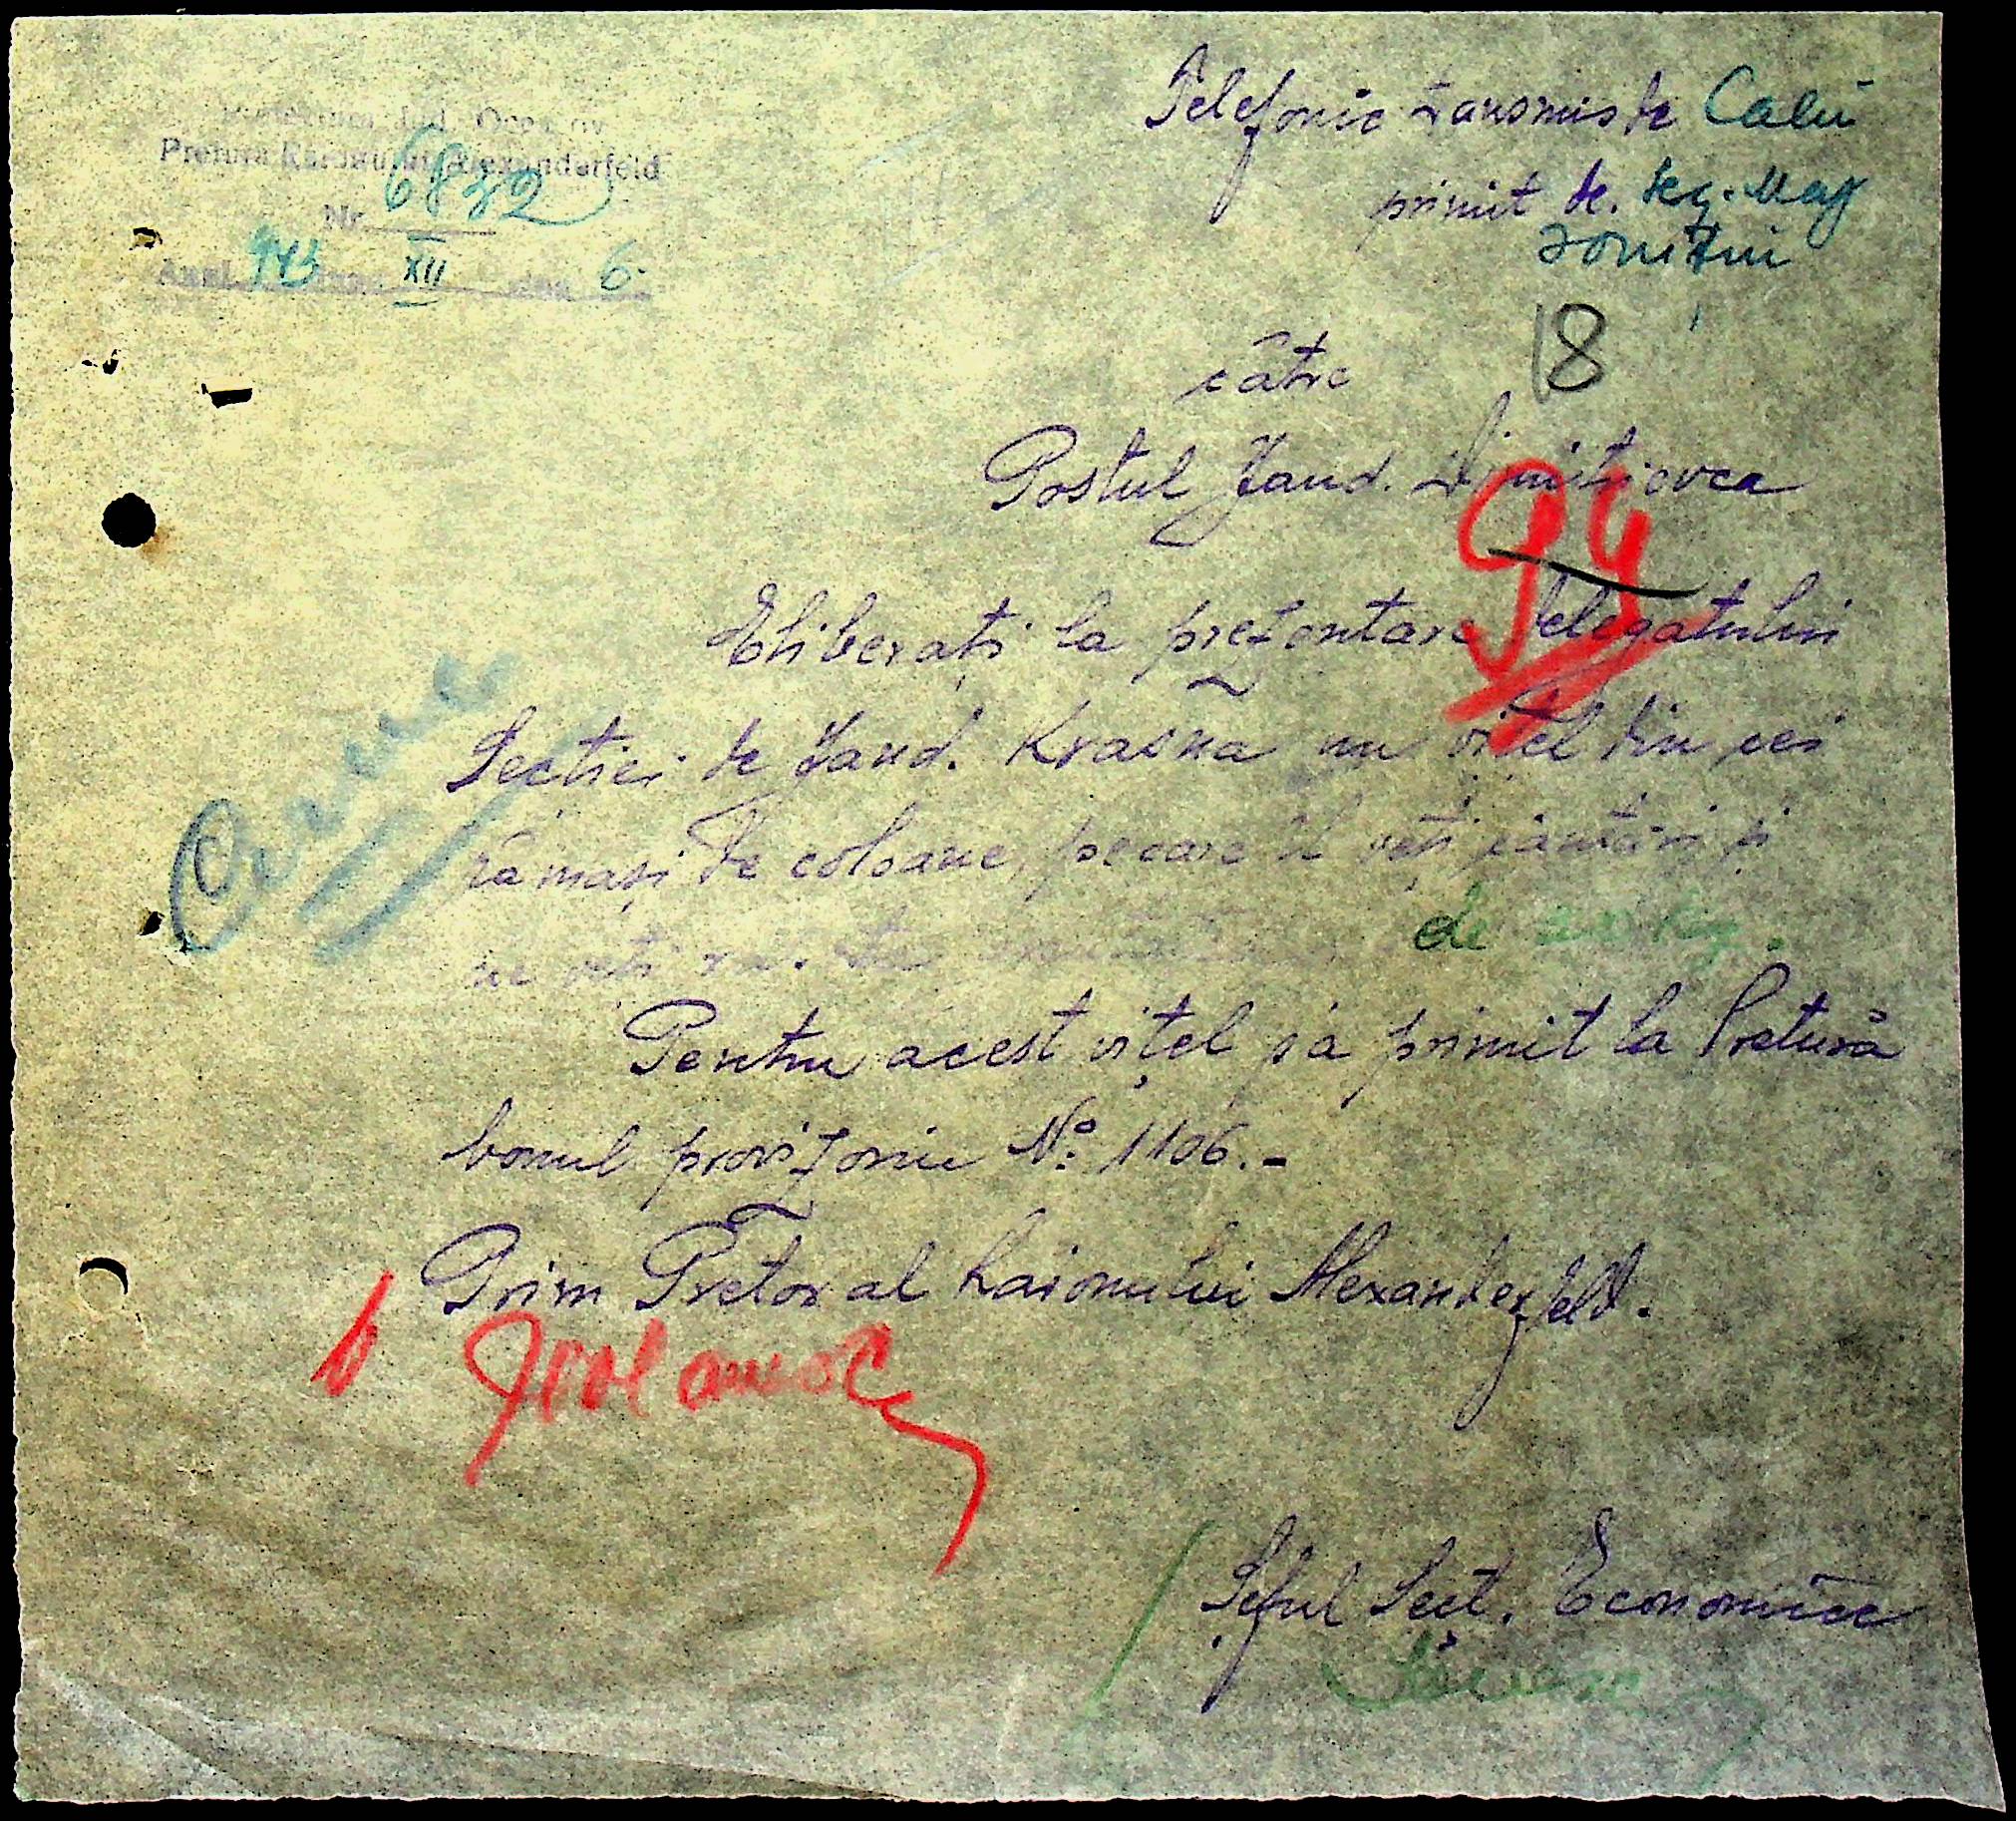 Pretura Raionului Alexanderfeld
Nr. 6832
Anul 943 luna XII ziua 6.
Telefonic transmis de Calui
primit de. Seg. Maj
Ionițiu
către
18
Postul Jand. Dimitriovca
94
Eliberați la prezentare delegatului
Secției de Jand. Krasna un vițel din cei
rămași de coloane, pecare îl veți cântări și
ne veți
de
Pentru acest vițel s'a primit la Pretură
bonul provizoriu No. 1106.-
Prim Pretor al Raionului Alexanderfeld.
Șeful Secț. Economice